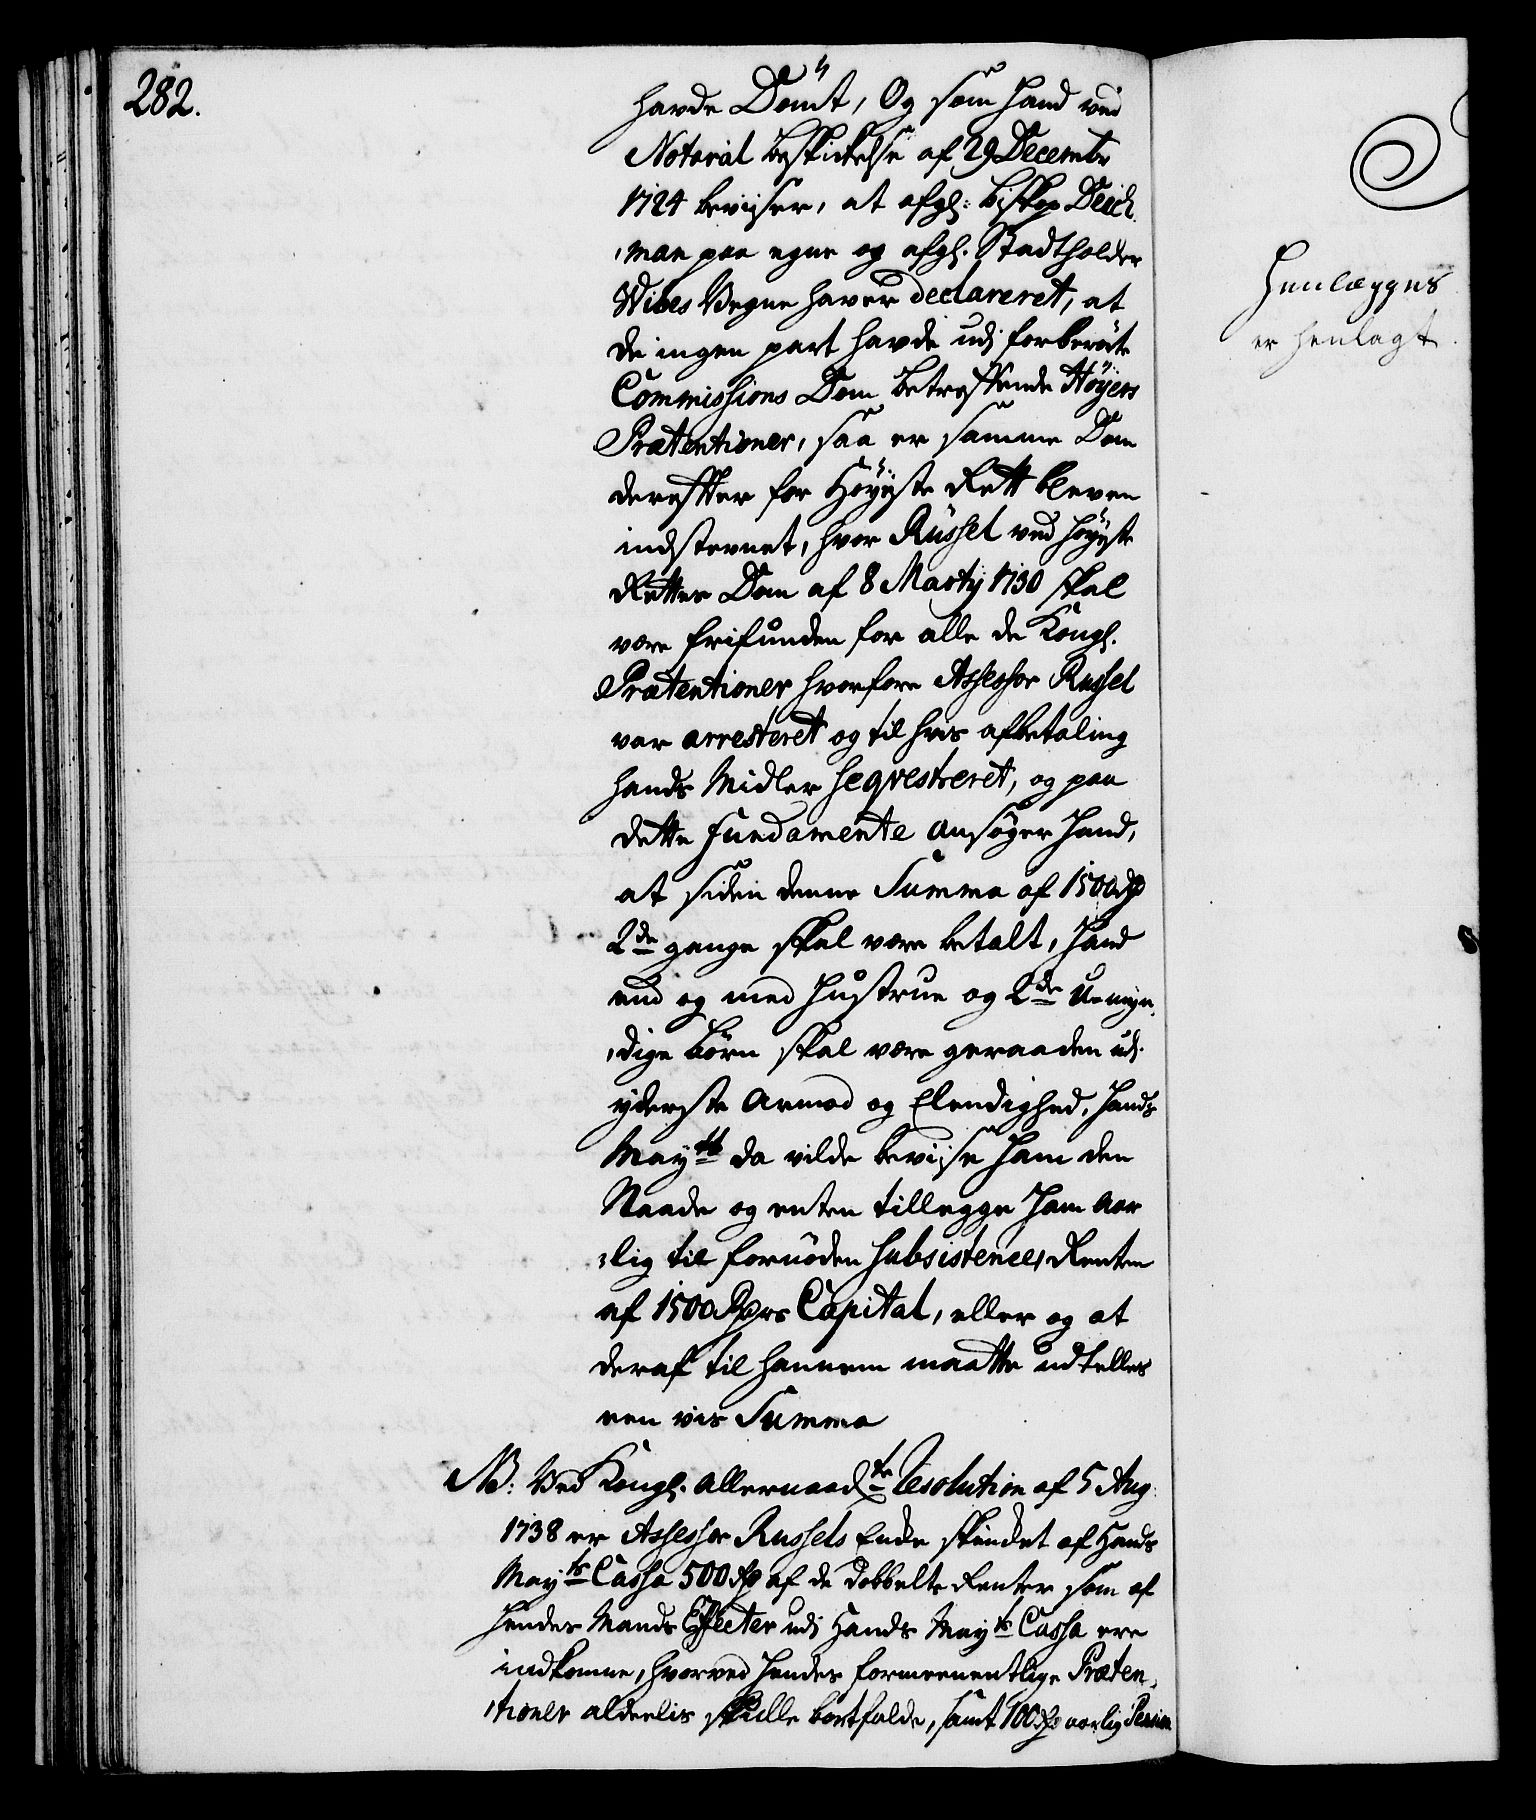 282.
havde Dömt, Og som hand ved
Notarial beskikelse af 29 Decembr
1724 beviiser, at afg: biskop Deich,
,man paa egne og afg. Stadtholder
Wibes Vegne haver declareret, at
de ingen part havde udi forberörte
Commissions Dom betreffende Höyers
Prætentioner, saa er samme Dom
derefter for Höyeste Rett bleven
indstevnet, hvor Russel ved höyste
Rettes Dom af 8 Martij 1730 skal
være frifunden for alle de Kongl.
Prætentioner hvorfore Assessor Russel
var arresteret og til hvis afbetaling
hands Midler seqvestreret, og paa
dette Fundamente ansöger hand,
at siden denne Summa af 1500 Rd
2de gange skal være betalt, hand
end og med hustrue og 2de Umyn,
,dige börn skal være geraaden udi
yderste Armod og Elendighed, hands
Maytt da vilde beviise ham den
Naade og enten tillegge ham aar
,lig til fornöden subsistence, Renten
af 1500 Rdrs Capital, eller og at
deraf til hannem maatte udtelles
een vis Summa
NB: Ved Kongl. allernaadste Resolution af 5 Aug:
1738 er Assessor Russels Enke skienket af Hands
Mayts Cassa 500 Rd af de dobbelte Renter som af
hendes Mands Effecter udi Hands Mayts Cassa ere
indkomne, hvorved hendes formeenentlige Præten,
,tioner aldeelis skulle bortfalde, samt 100 Rd aarlig Pension
Henlægges
er henlagt.